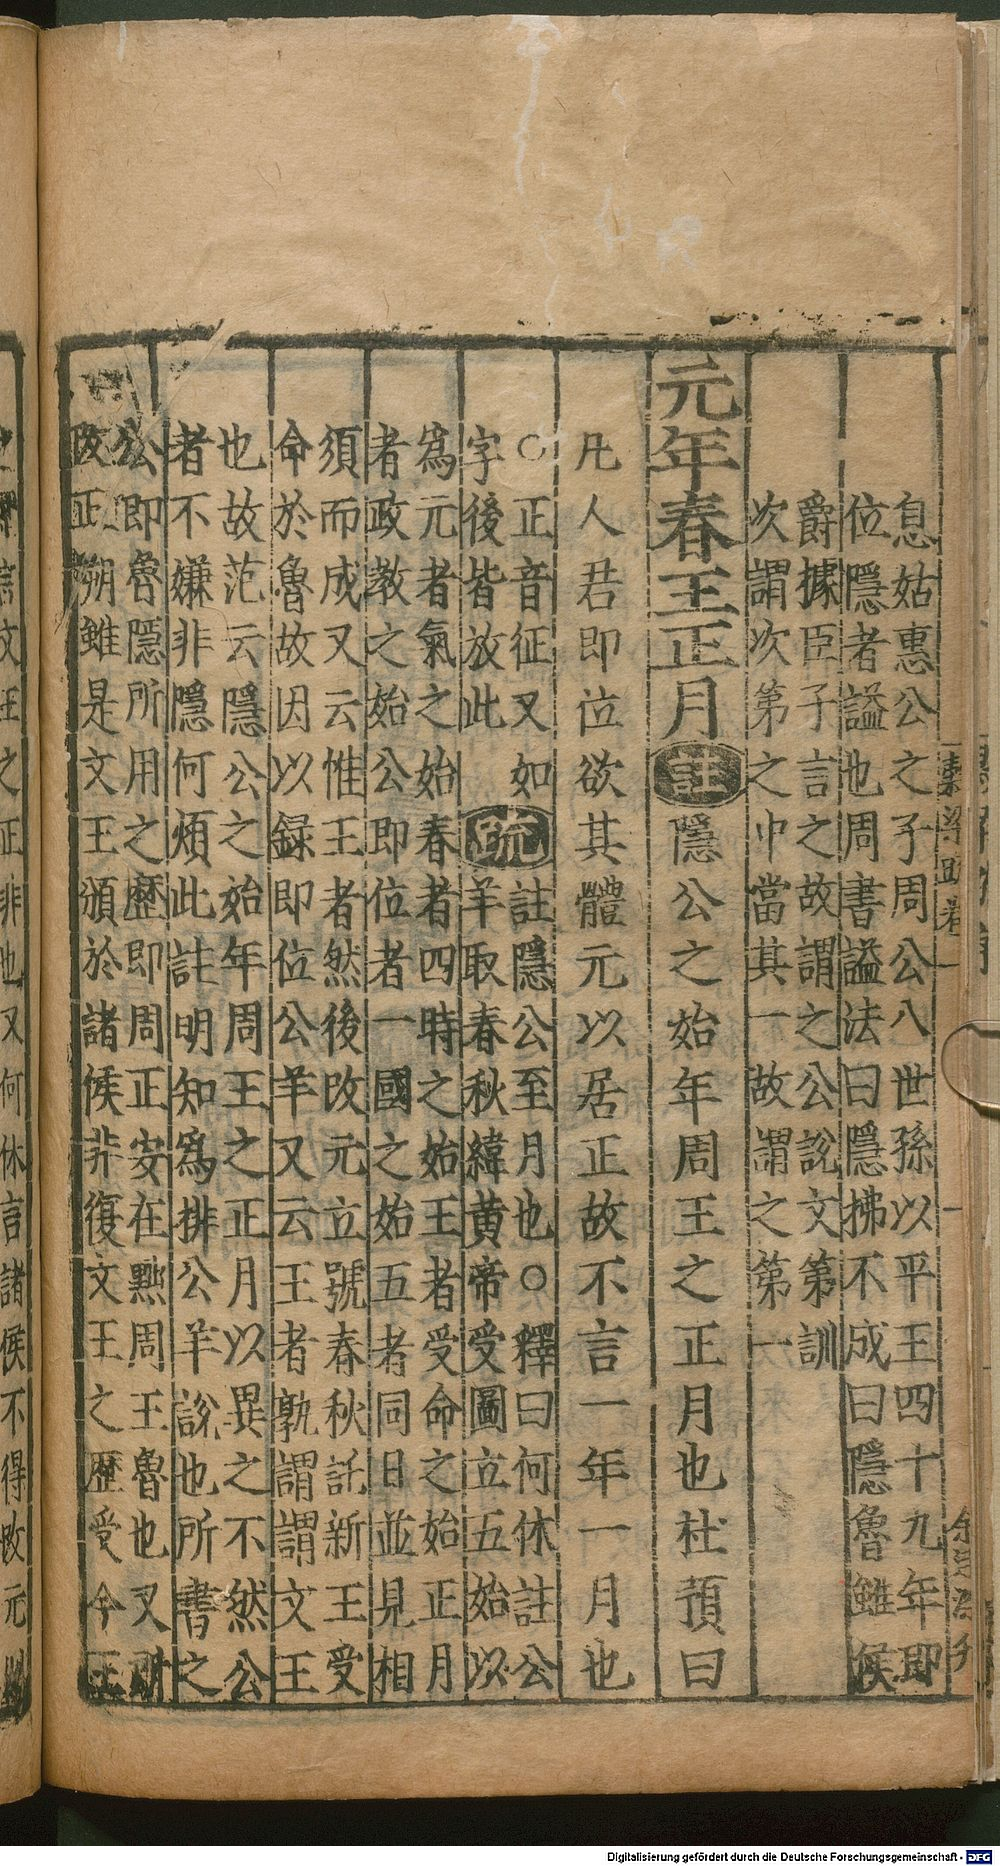 息姑惠公之子周公八世孫以平王四十九年即
位隱者謚也周書謚法曰隱拂不成曰隱魯雖侯
爵據臣子言之故謂之公說文第訓
次謂次第之中當其一故謂之第一
元年春王正月註隱公之始年周王之正月也杜預曰
凡人君即位欲其體元以居正故不言一年一月也
○正音征又如
字後皆放此
疏
註隱公至月也○釋曰何休註公
羊取春秋緯黃帝受圖立五始以
為元者氣之始春者四時之始王者受命之始正月
者政教之始公即位者一國之始五者同日並見相
須而成又云惟王者然後改元立號春秋託新王受
命於魯故因以録即位公羊又云王者孰謂謂文王
也故范云隱公之始年周王之正月以異之不然公
者不嫌非隱何煩此註明知為排公羊說也所書之
公即魯隱所用之歷即周正安在黜周王魯也又
改正朔雖是文王頒於諸侯非復文王之歷受今王
之 言文王之正非也又何休言諸侯不得改元
Digitalisierung gefördert durch die Deutsche Forschungsgemeinschaft - DFG